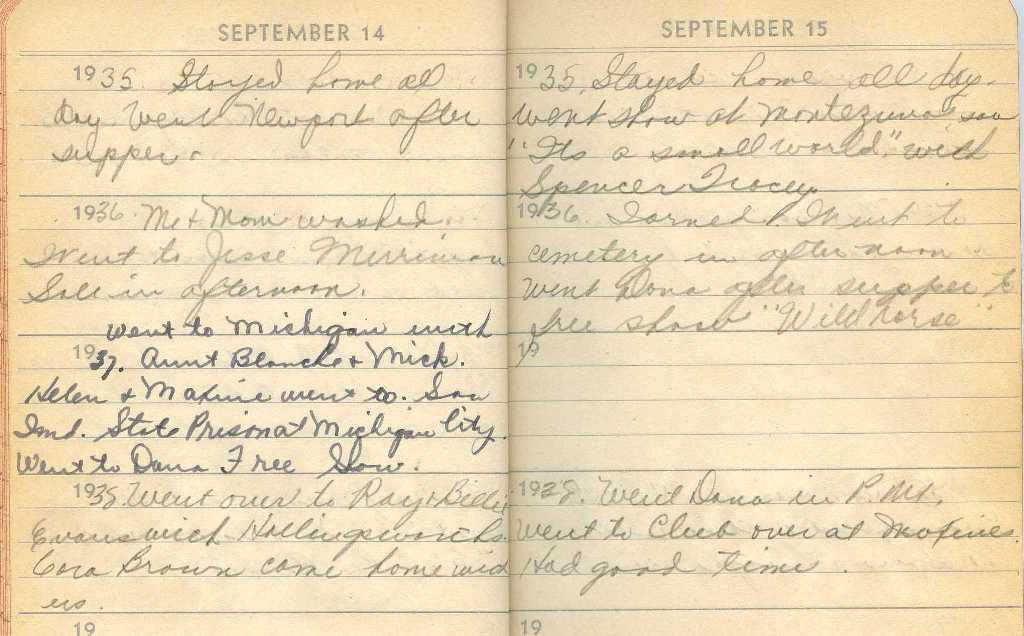 SEPTEMBER 14
1935. Stayed home al
day Went Newport after
supper.
1936. Me & Mom washed.
Went to Jesse Merriman
Sale in afternoon.
Went to Michigan with
1937. Aunt Blanche & Mick.
Helen & Maxine went to. Saw
Ind. State Prison at Michigan City.
Went to Dana Free Show.
1938. Went over to Ray & Billie
Evans with Hollingsworths.
Cora Brown came home with
us.
19
SEPTEMBER 15
1935. Stayed home all day.
Went show at Montezuma saw
"Its a small world." with
Spencer Tracey.
1936. Ironed. Went to
cemetery in afternoon
Went Dana after supper to
free show "Wildhorse"
19
1938. Went Dana in P.M.
Went to Club over at Maxines.
Had good time.
19